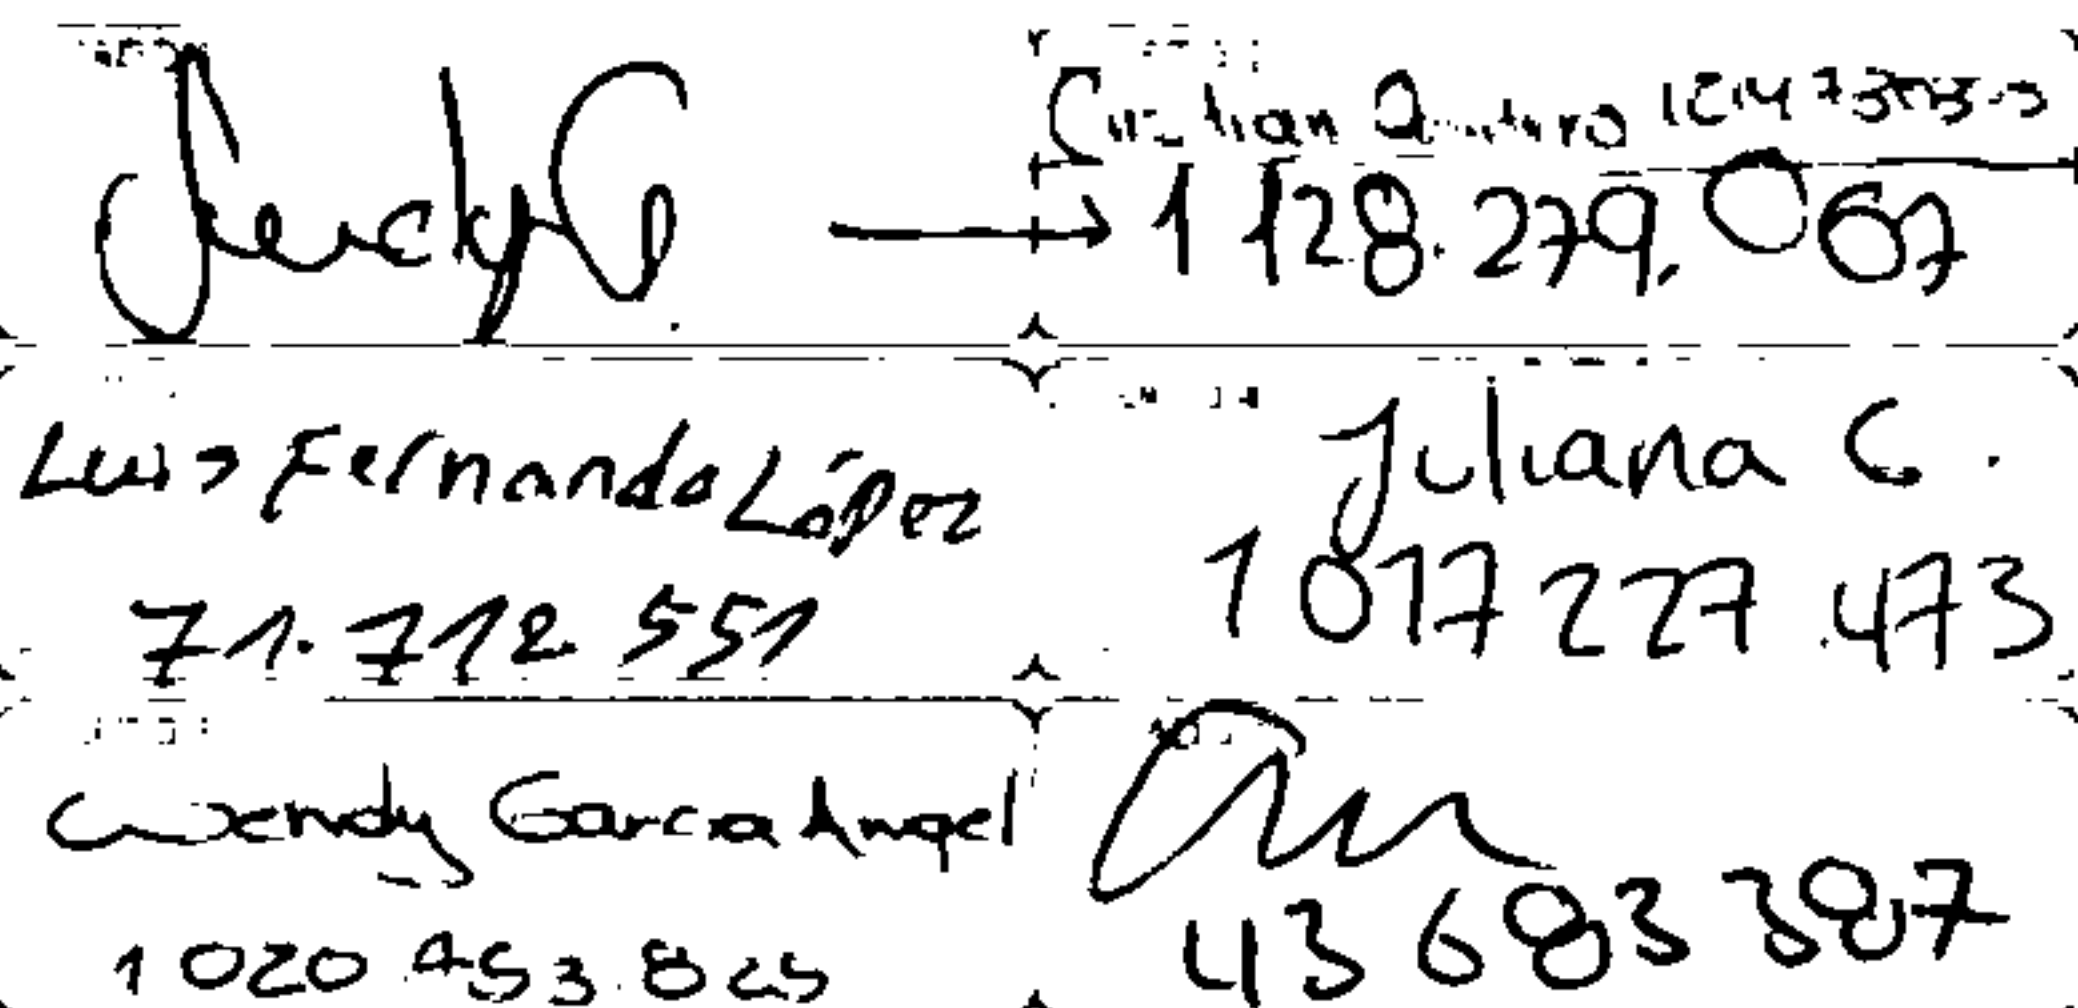 Leidy G
Cristian Quintero
1 128.279.067
Luis Fernando López
71.712 551
Juliana C.
1 017 227 473
Wendy Garcia Angel
1020 453.825
43 683 387